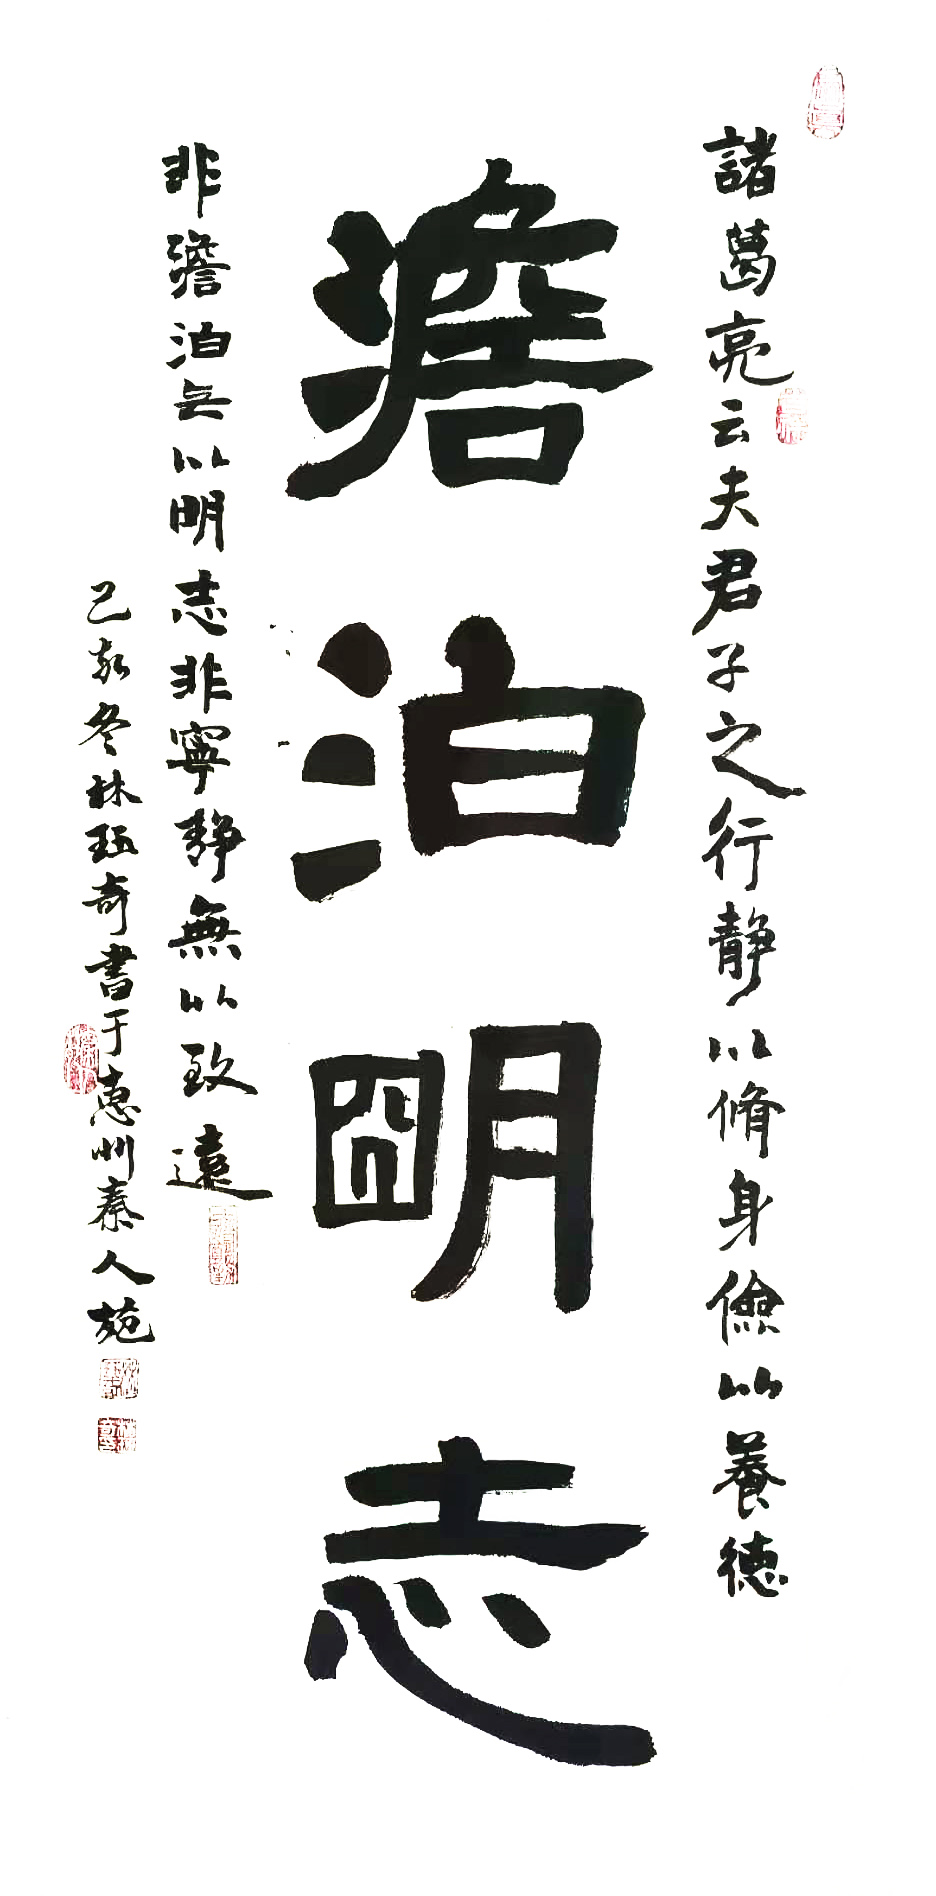 諸葛亮云夫君子之行靜以脩身儉以養德
澹泊明志
非澹泊无以明志非寧靜無以致遠
己亥冬林珏奇書于惠州秦人苑